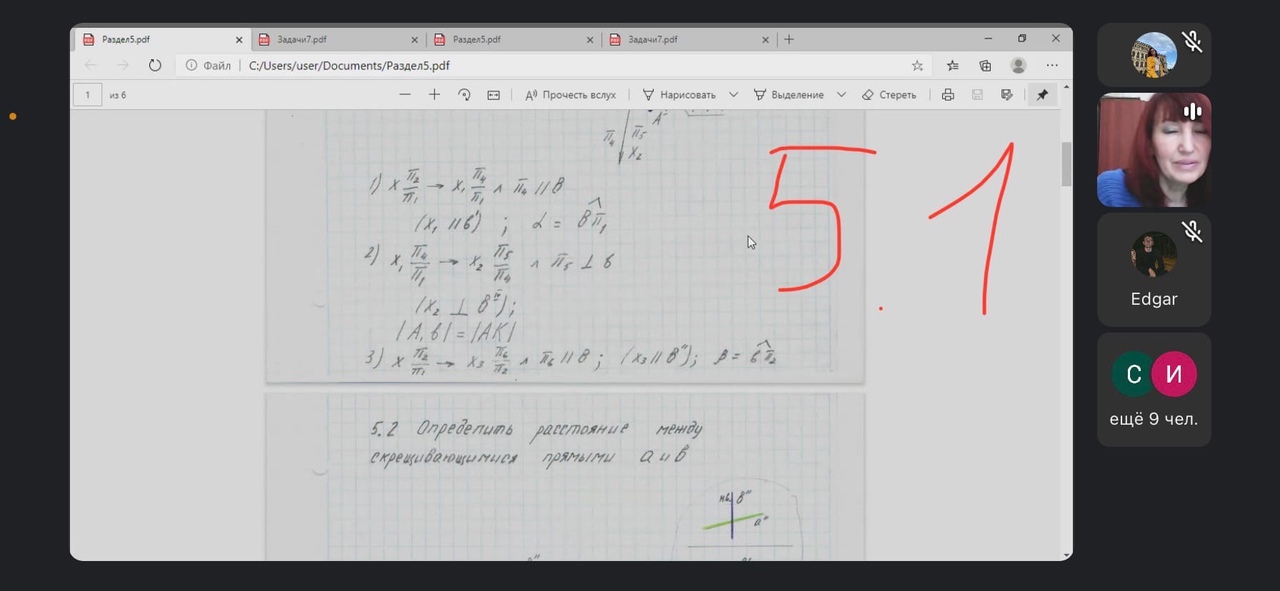 Раздел5.pdf
Задачи7.pdf
Раздел5.pdf
Задачи7.pdf
Файл
C:/Users/user/Documents/Раздел5.pdf
1
из 6
Прочесть вслух
Нарисовать
Выделение
Стереть
π4 π5
X2
A
5.1
1) X π2/π1 → X1 π4/π1 ∧ π4 // в
(X1 // в') ; α = в^π1
2) X1 π4/π1 → X2 π5/π4 ∧ π5 ⊥ в
(X2 ⊥ в^IV);
|A, в| = |AK|
3) X π2/π1 → X3 π6/π2 ∧ π6 // в ; (X3 // в"); β = в^π2
5.2 Определить расстояние между
скрещивающимися прямыми а и в
в"
а"
Edgar
С
И
ещё 9 чел.